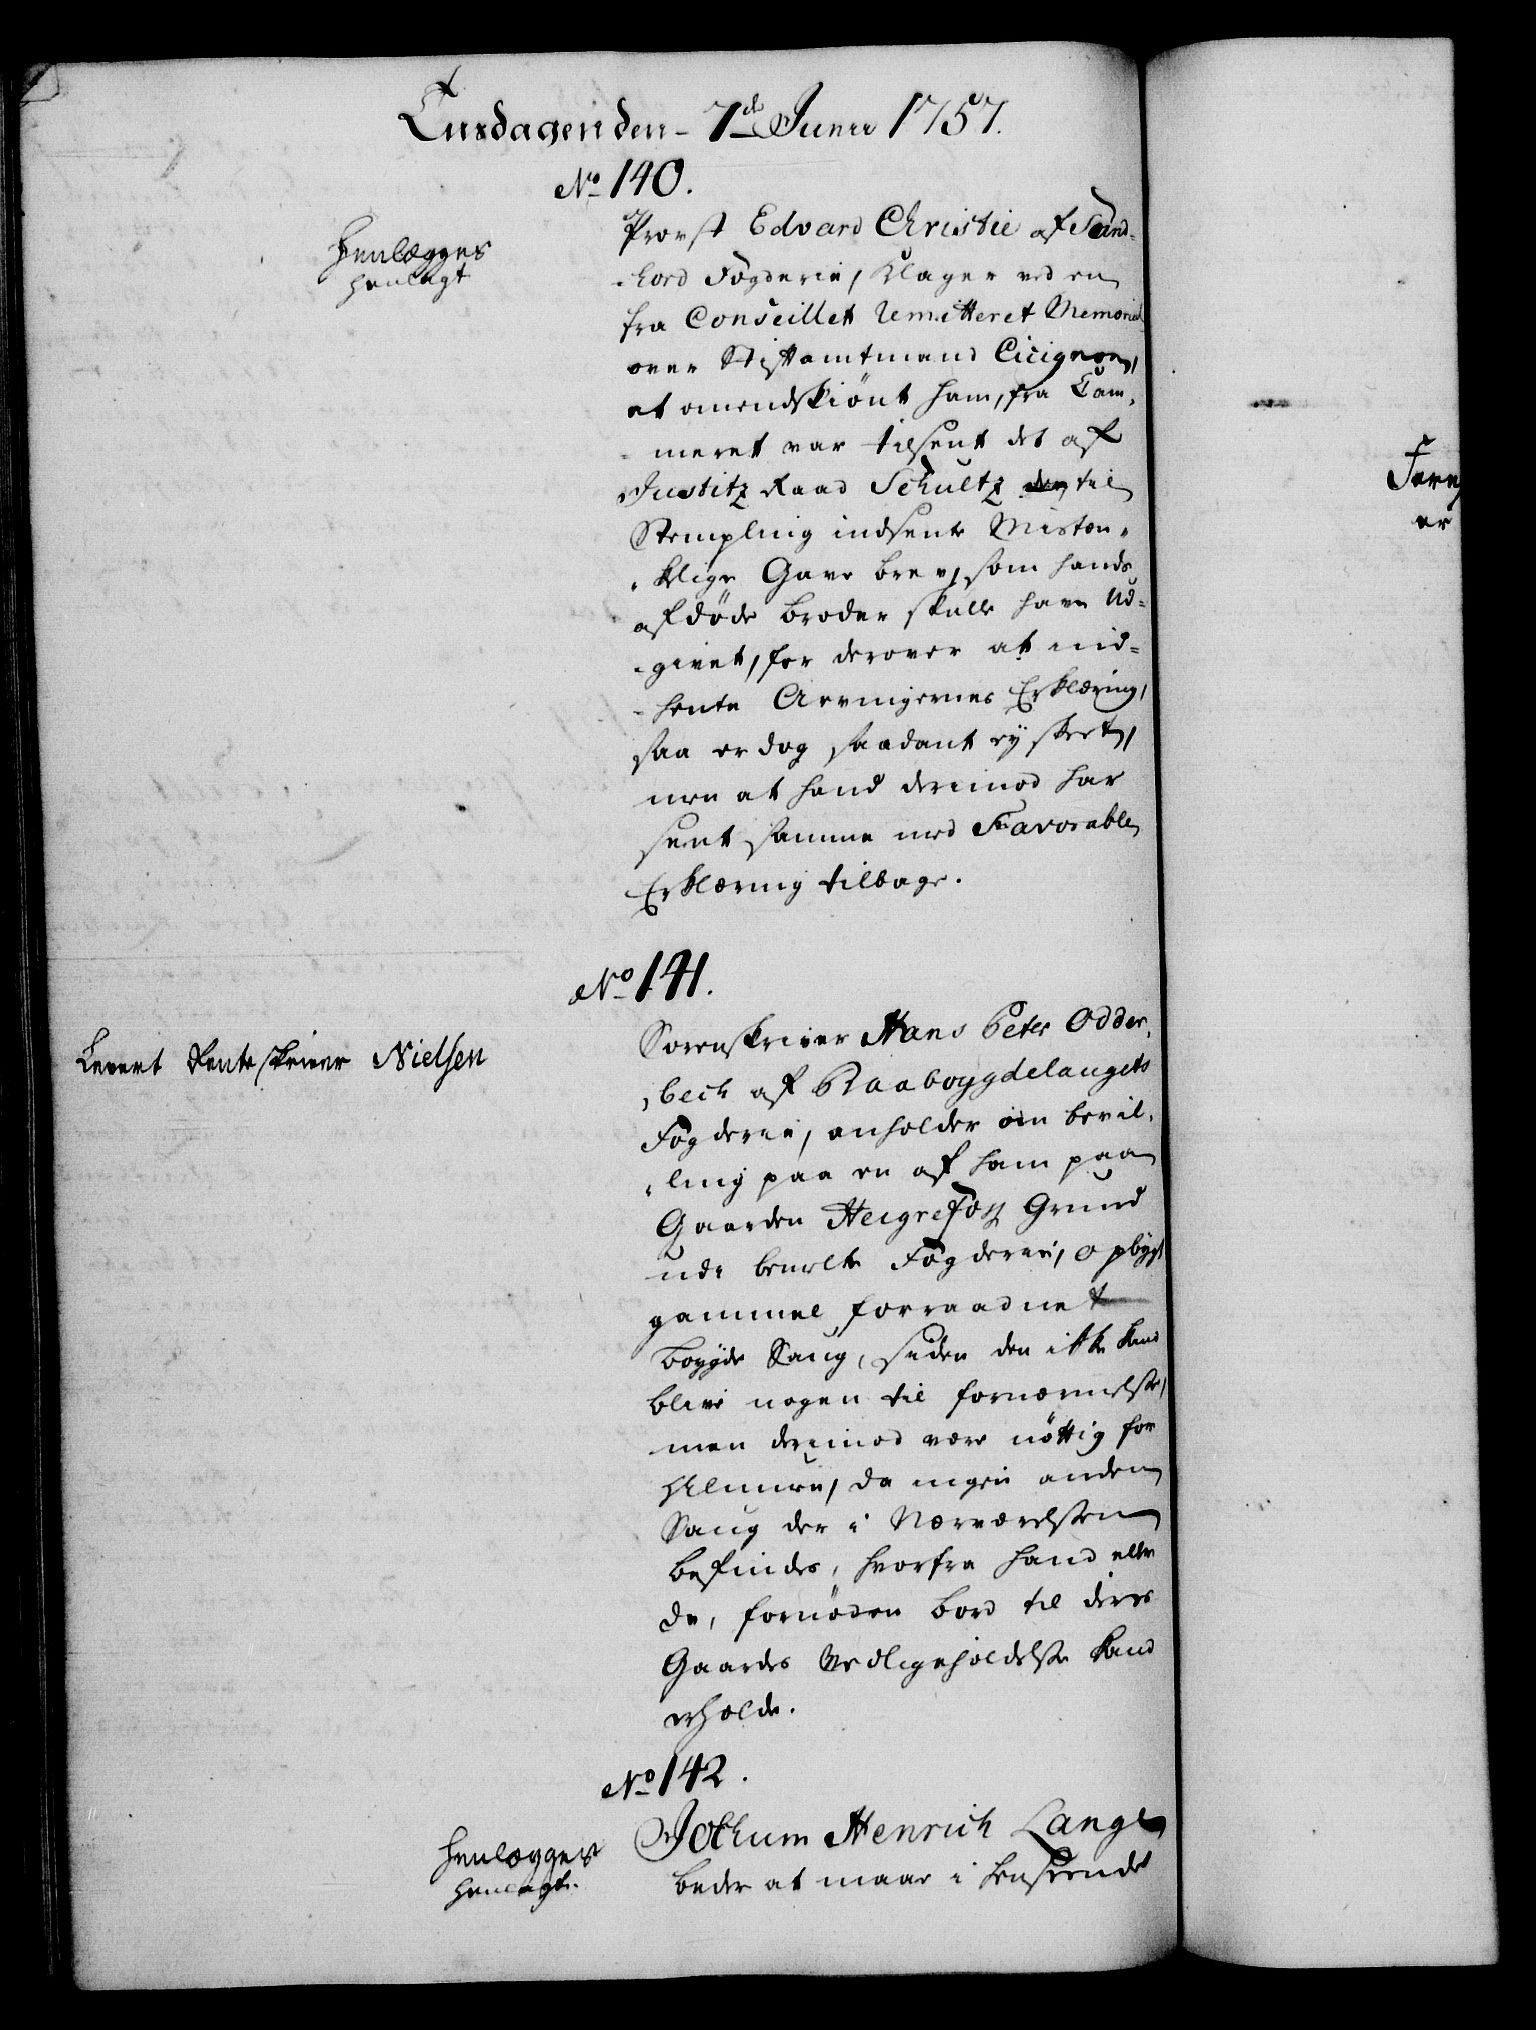 Tiisdagen den 7de Junii 1757.
No 140.
Henlægges
henlagt
Provst Edvard Christie af Sund-
-hord Fogderie, klager ved en
fra Conseillet remitteret Memorial
over Stiftamtmand Cicignon,
at omendskiönt ham, fra Cam-
-meret var tilsendt det af
Justitz Raad Schultz til
Stempling indsente Mistæn-
-kelige Gave brev, som hands
afdöde broder skulle have Ud-
-givet, for derover at ind-
-hente Arvingernes Erklæring,
saa er dog saadant ey skeet,
men at hand derimod har
sent samme med Favorable
Erklæring tilbage.
No 141.
Leveret Renteskriver Nielsen
Sorenskriver Hans Peter Odder-
-bech af Raabøygdelaugets
Fogderie, anholder om bevil-
-ling paa en af ham paa
Gaarden Heigrefos Grund
udi bemelte Fogderie, opbygt
gammel forraadnet
bøygde Saug, siden den ikke kand
blive nogen til fornærmelse,
men derimod være nöttig for
Almuen, da ingen anden
Saug der i Nærværelsen
befindes, hvorfra hand eller
de, fornöden bord til deres
Gaardes Vedligeholdelse kand
erholde.
No 142.
Henlægges
henlagt.
Jochum Henrich Lange
beder at maae i henseende